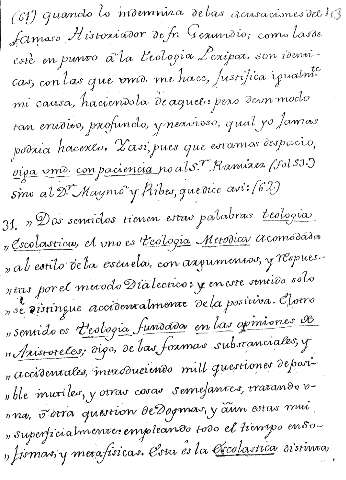 (61) quando lo indemniza de las acusaciones del
famoso Historiador de fr. Gerundio; como las de
este en punto à la teologia Peripat. son identi-
cas, con las que vmd. me hace, justifica igualm.te
mi causa, haciendola de aquel: pero de un modo
tan erudito, profundo, y nervioso, qual yo jamas
podria hacerlo. Y asi, pues que estamos despacio,
oiga vmd. con paciencia no al S.r Ramirez (fol. 51.)
sino al D.r Maymò y Ribes, que dice asi: (62)
31. „ Dos sentidos tienen estas palabras teologia
„ Escolastica, el uno es teologia Metodica acomodada
„ al estilo de la escuela, con argumentos, y respues-
„ tas por el metodo Dialectico: y en este sentido solo
„ se distingue accidentalmente de la positiva. El otro
„ sentido es teologia fundada en las opiniones de
„ Aristoteles, digo, de las formas substanciales, y
„ accidentales, introduciendo mill questiones de posi-
„ ble inutiles, y otras cosas semejantes, tratando u-
„ na, ù otra question de Dogmas, y aun estas mui
„ superficialmente: empleando todo el tiempo en so-
„ fismas, y metafisicas. Esta es la Escolastica distinta,